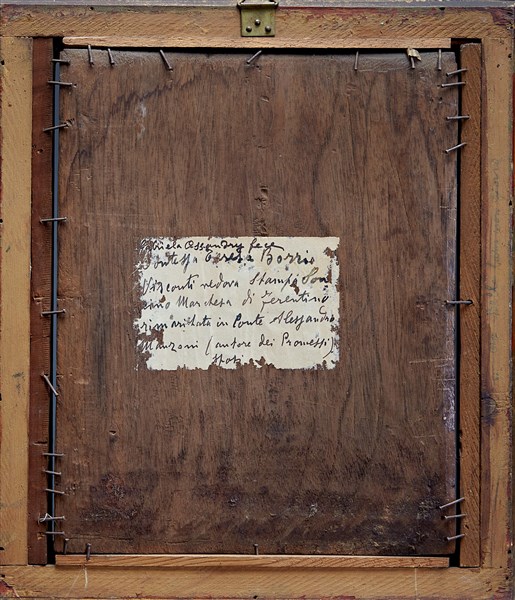 fece
Contessa Teresa Borrio
Visconti vedova Stampa Son
cino Marchesa di Ferentino
rimaritata in Conte Alessandro
Manzoni (autore dei Promessi)
Sposi